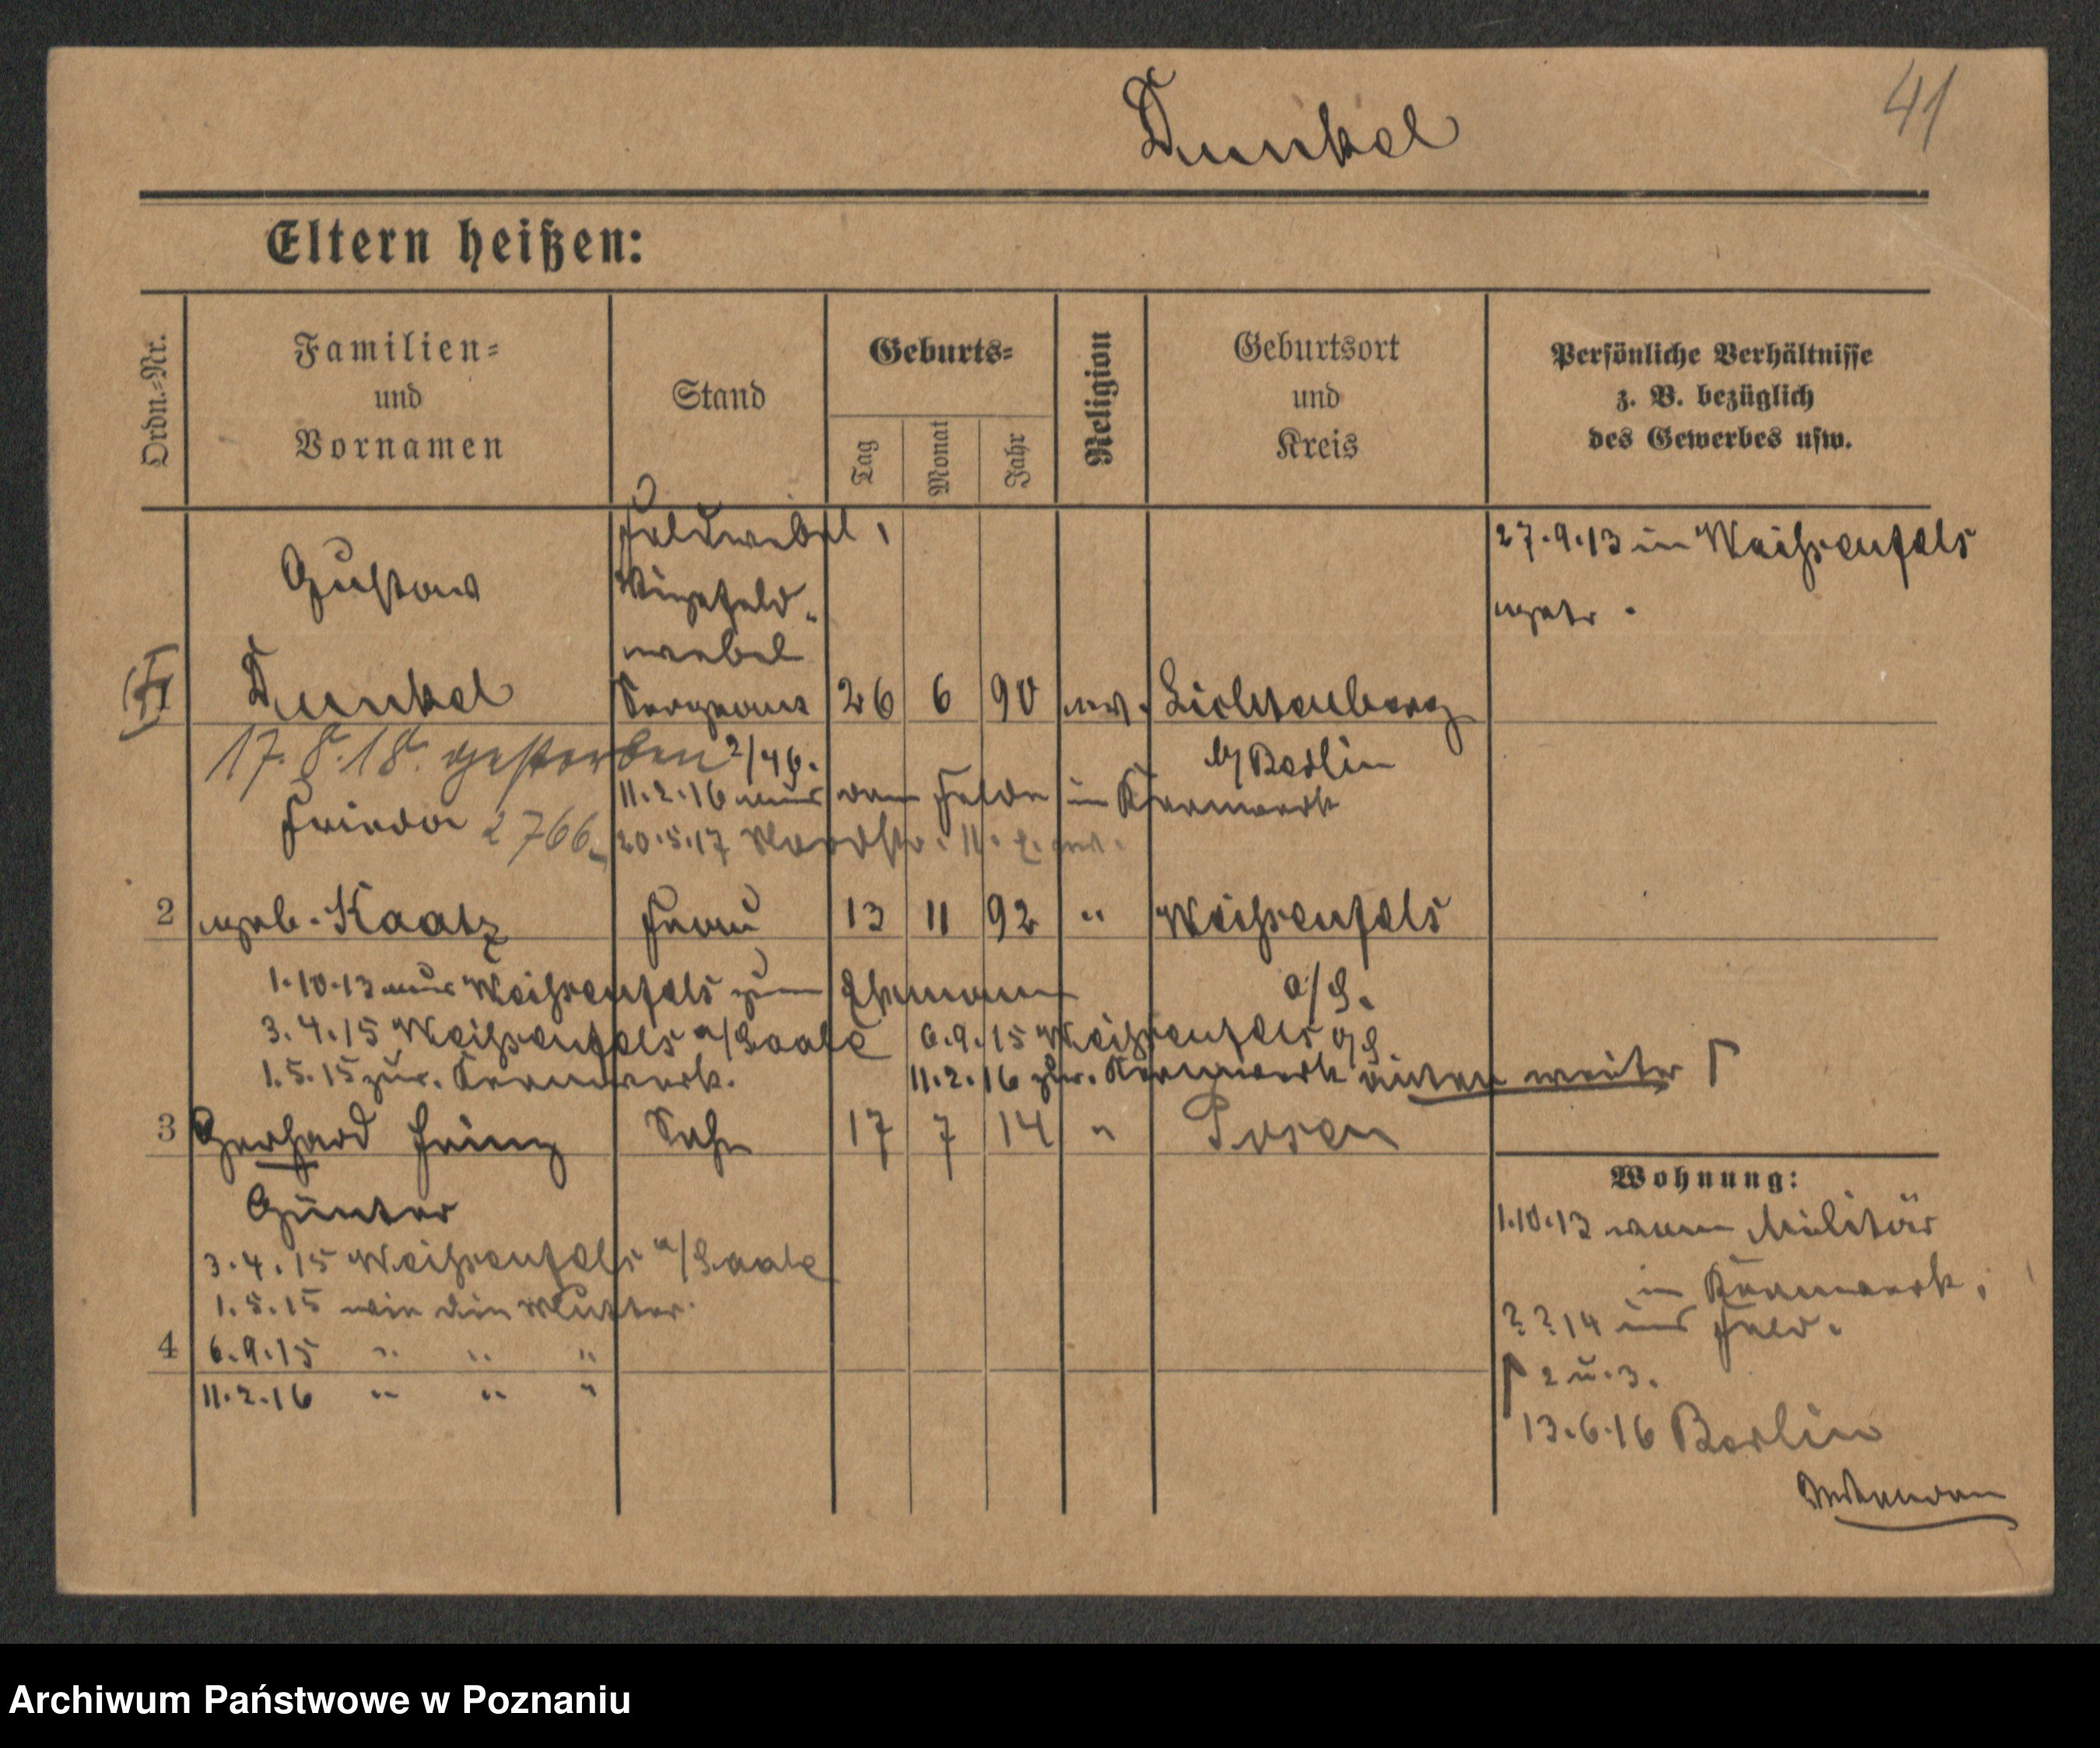 41
Dunkel
Eltern heißen:
Ordn.-Nr.
Familien- und Vornamen
Stand
Geburts-
Tag
Monat
Jahr
Religion
Geburtsort und Kreis
Persönliche Verhältnisse z. B. bezüglich des Gewerbes usw.
Feldwebel,
27.9.13 in Weißenfels
Gustav
Vizefeld-
getr.
webel
Dunkel Sergeant 26 6 90 ev. Lichtenberg
17.8.18. gestorben 2/46.
b/Berlin
11.2.16 aus dem Felde in Kernwerk
Frieda 2766
20.5.17
2 geb. Kaatz Frau 13 11 92 " Weißenfels
a/S.
1.10.13 aus Weißenfels zum Ehemann
3.4.15 Weißenfels a/Saale 6.9.15 Weißenfels a/S
1.5.15 zur. Kernwerk. 11.2.16 zur. Kernwerk unten weiter
3 Gerhard Heinz Sohn 17 7 14 " Posen
Günter
3.4.15 Weißenfels a/Saale
1.5.15 wie die Mutter.
4 6.9.15 " " "
11.2.16 " " "
Wohnung:
1.10.13 vom Militär
in Kernwerk,
? ? 14 ins Feld.
2 u. 3.
13.6.16 Berlin
Archiwum Państwowe w Poznaniu